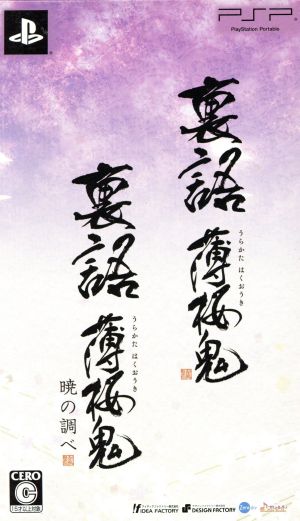 PSP
PlayStation Portable
裏語 薄桜鬼
うらかた はくおうき
裏語 薄桜鬼
うらかた はくおうき
暁の調べ
CERO
C
15才以上対象
IDEA FACTORY
DESIGN FACTORY